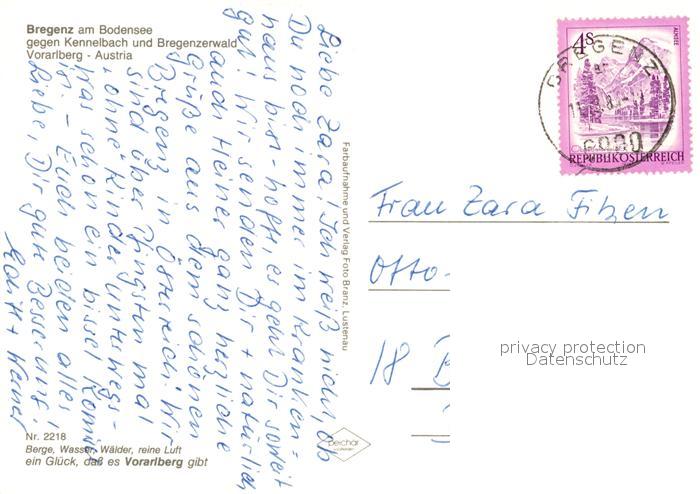 Bregenz am Bodensee
gegen Kennelbach und Bregenzerwald
Vorarlberg - Austria
Liebe Zara! Ich weiß nicht, ob
Du noch immer im Kranken=
haus bist - hoffe, es geht Dir soweit
gut! Wir senden Dir + natürlich
auch Heiner ganz herzliche
Grüße aus dem schönen
Bregenz in Österreich. Wir
sind über Pfingsten mal
"ohne" Kinder unterwegs -
was schon ein bissel komisch
ist. - Euch beiden alles
Liebe, Dir gute Besserung!
Edith + Heiner
Nr. 2218
Berge, Wasser, Wälder, reine Luft
ein Glück, daß es Vorarlberg gibt
Farbaufnahme und Verlag Foto Branz, Lustenau
4 S
ALMSEE
REPUBLIK ÖSTERREICH
BREGENZ
6900
Frau Zara Fitzen
Otto-
18 B
privacy protection
Datenschutz